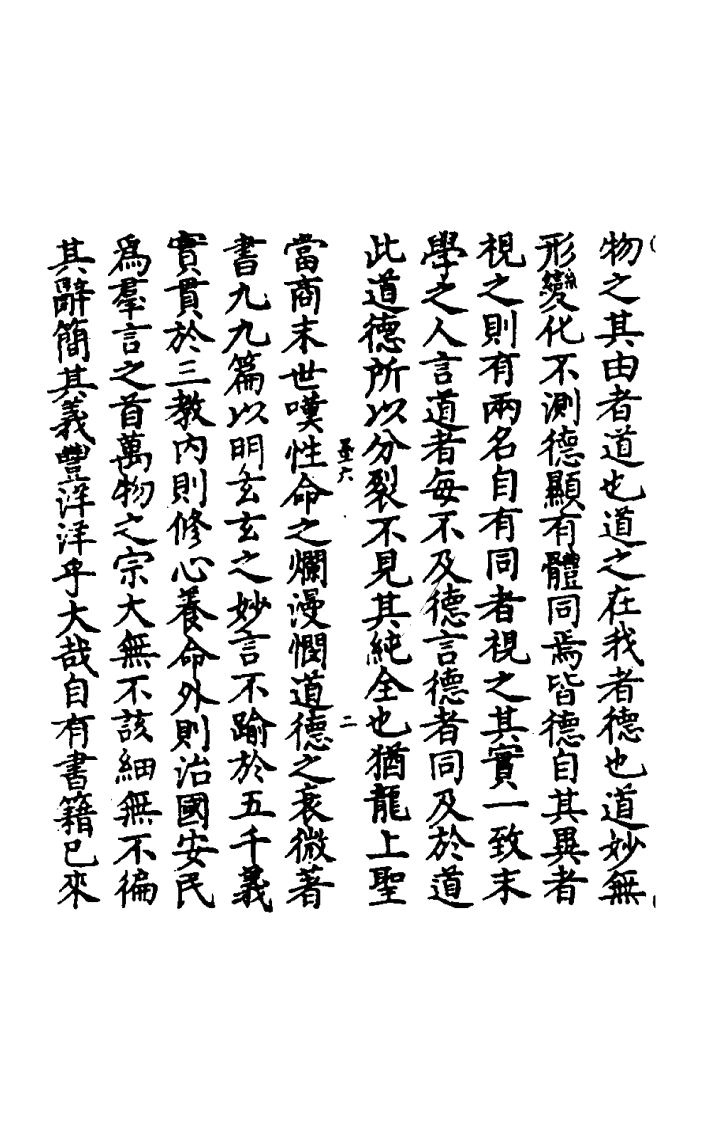 物之其由者道也道之在我者德也道妙無
形變化不測德顯有體同焉皆德自其異者
視之則有兩名自有同者視之其實一致末
學之人言道者每不及德言德者同及於道
此道德所以分裂不見其純全也猶龍上聖
二
當商末世嘆性命之爛漫憫道德之衰微著
書九九篇以明玄玄之妙言不踰於五千義
實貫於三教內則修心養命外則治國安民
為羣言之首萬物之宗大無不該細無不徧
其辭簡其義豐洋洋乎大哉自有書籍已來